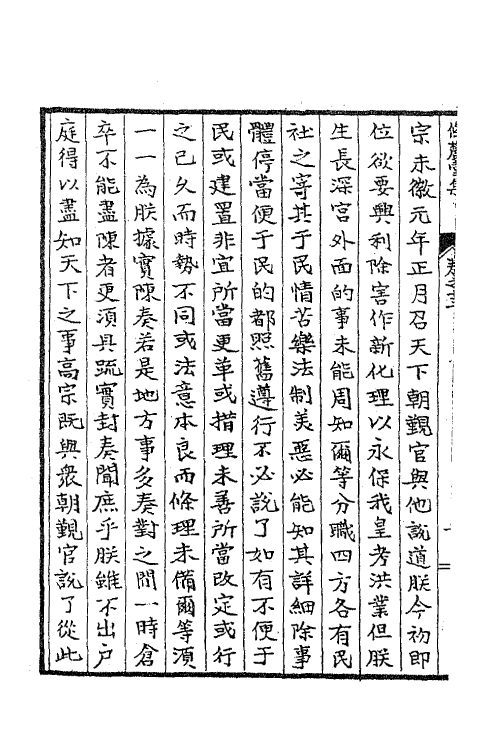 宗未徽元年正月召天下朝覲官與他說道朕今初即
位欲要興利除害作新化理以永保我皇考洪業但朕
生長深宫外面的事未能周知爾等分職四方各有民
社之寄其于民情苦樂法制美惡必能知其詳細除事
體停當便于民的都照舊遵行不必說了如有不便于
民或建置非宜所當更革或措理未善所當改定或行
之已久而時勢不同或法意本良而條理未備爾等須
一一為朕據實陳奏若是地方事多奏對之間一時倉
卒不能盡陳者更須具疏實封奏聞庶乎朕雖不出户
庭得以盡知天下之事高宗既與衆朝覲官說了從此